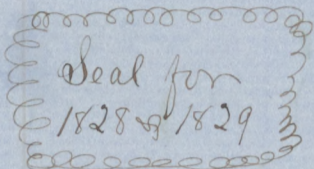 Seal for
1828 & 1829